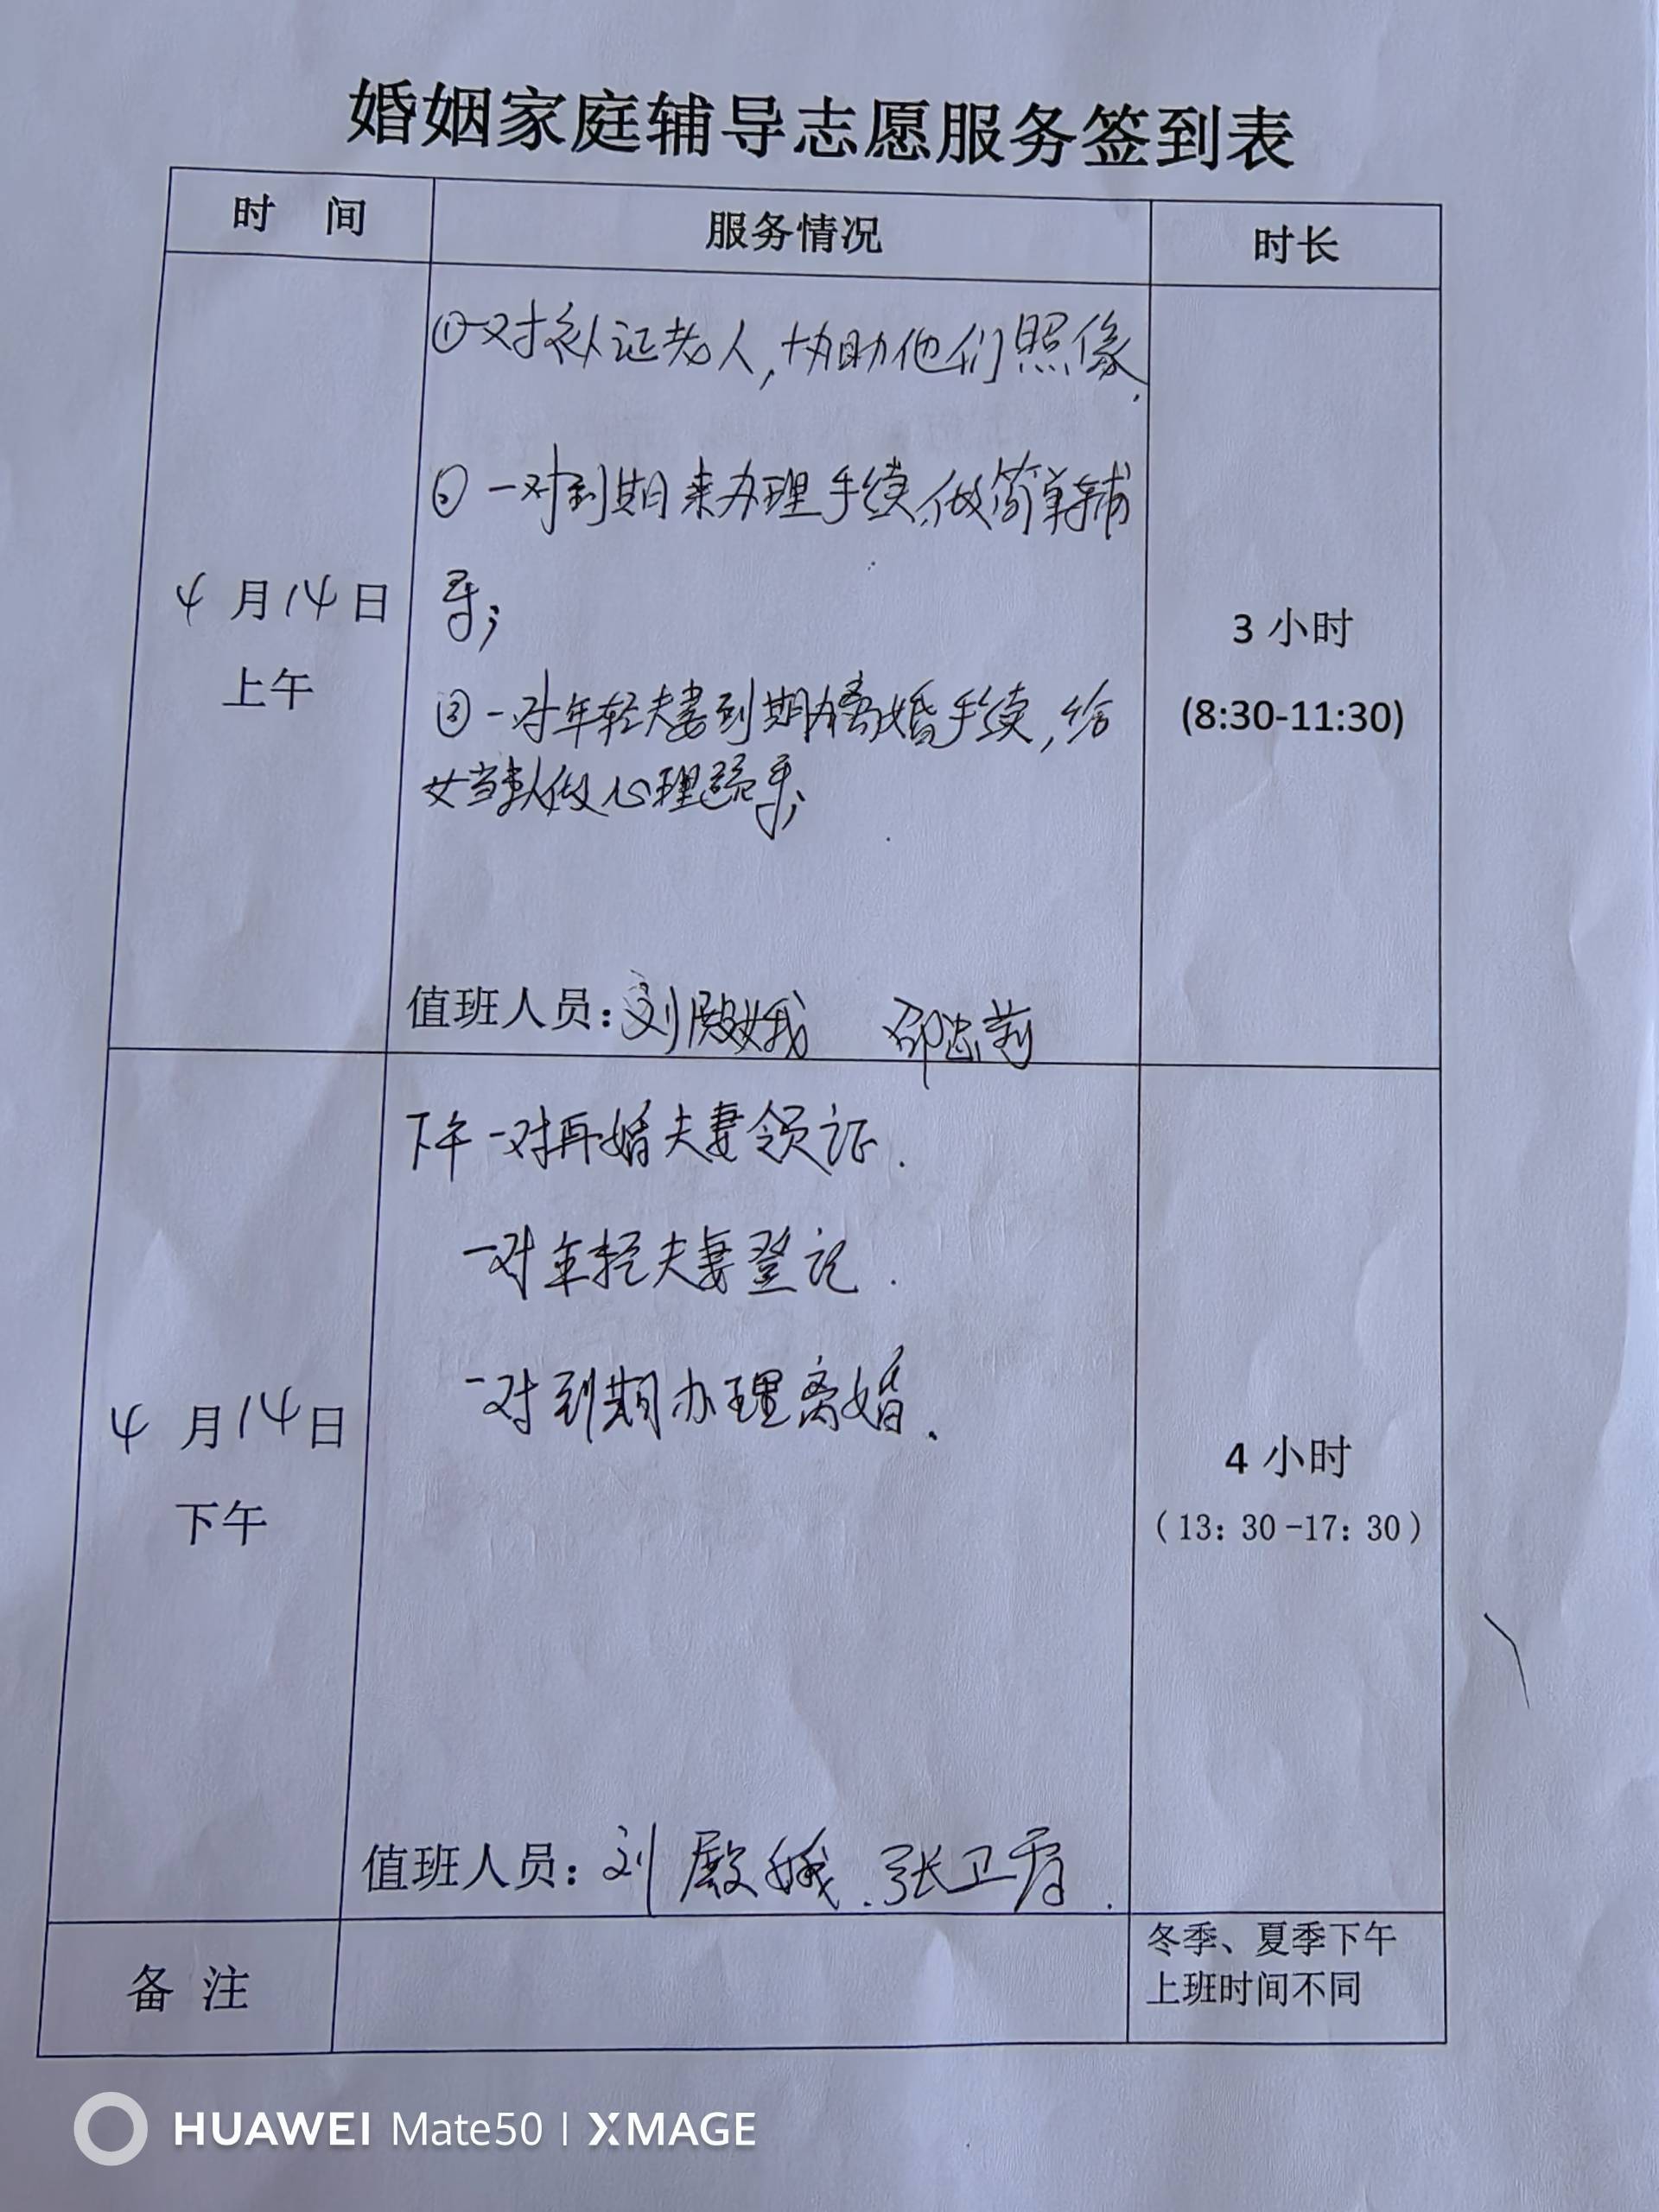 婚姻家庭辅导志愿服务签到表
时 间
服务情况
时长
4月14日
上午
①一对补证老人,协助他们照像.
② 一对到期来办理手续,做简单辅
导;
③一对年轻夫妻到期办离婚手续,给
女当事人做心理疏导;
值班人员:刘殿娥 邵忠莉
3 小时
(8:30-11:30)
4月14日
下午
下午一对再婚夫妻领证.
一对年轻夫妻登记.
一对到期办理离婚.
值班人员:刘殿娥.张卫
4 小时
(13:30-17:30)
备 注
冬季、夏季下午
上班时间不同
HUAWEI Mate50 | XMAGE